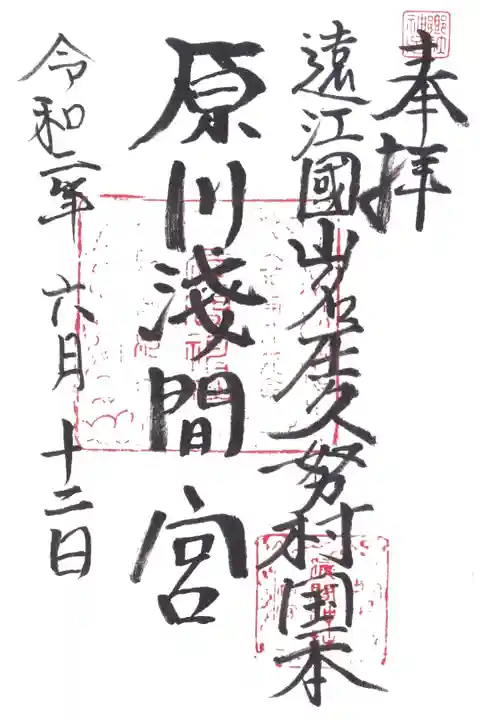 奉拝
遠江國山名庄久努村国本
原川淺間宮
令和二年六月十二日